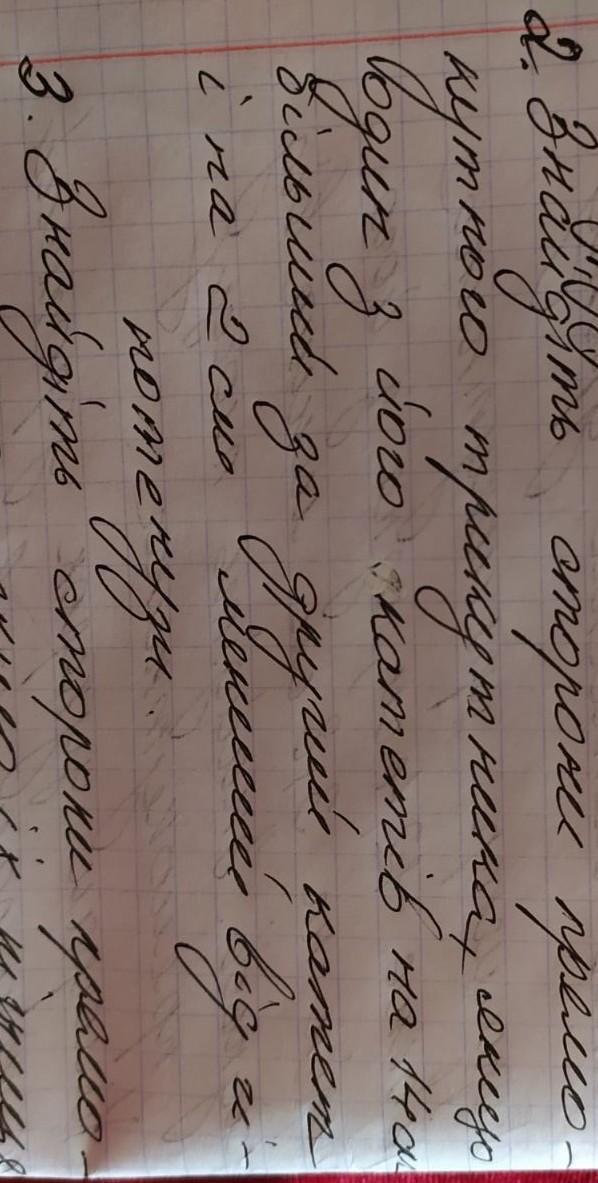 2. Знайдіть сторони прямо-
кутного трикутника, якщо
один з його катетів на 14 см
більший за другий катет
і на 2 см менший від гі-
потенузи.
3. Знайдіть сторони прямо-